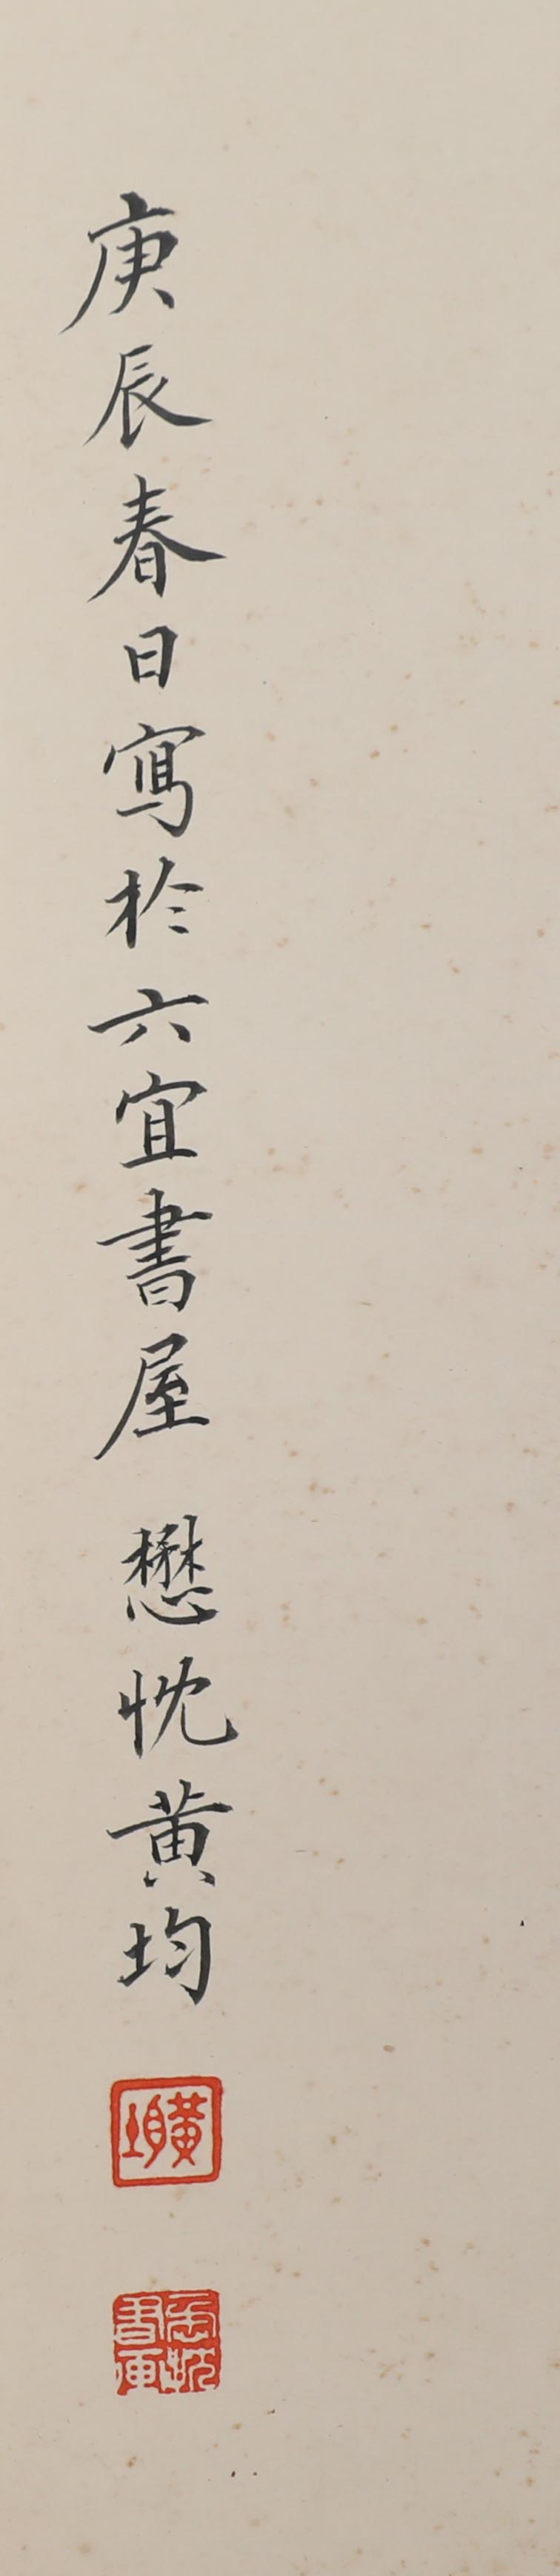 庚辰春日寫於六宜書屋 懋忱黄均
黄均